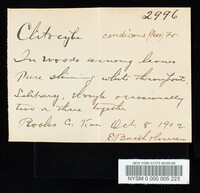 2996
Clitocybe candicans Pers. Fr
In woods among leaves
Pure shining white throughout,
Solitary, though occasionally
two or three together
Rooks C. Kan Oct 8 1902
E Bartholomew
NEW YORK STATE MUSEUM
NYSM 0 000 005 223